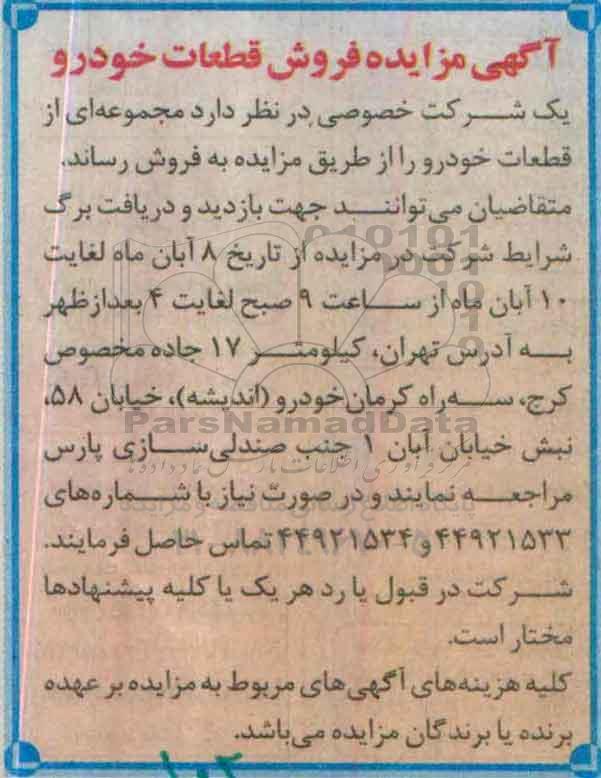 آگهی مزایده فروش قطعات خودرو
یک شرکت خصوصی در نظر دارد مجموعه‌ای از
قطعات خودرو را از طریق مزایده به فروش رساند.
متقاضیان می‌توانند جهت بازدید و دریافت برگ
شرایط شرکت در مزایده از تاریخ ۸ آبان ماه لغایت
۱۰ آبان ماه از ساعت ۹ صبح لغایت ۴ بعدازظهر
به آدرس تهران، کیلومتر ۱۷ جاده مخصوص
کرج، سه‌راه کرمان‌خودرو (اندیشه)، خیابان ۵۸،
ParsNamadData
نبش خیابان آبان ۱ جنب صندلی‌سازی پارس
مراجعه نمایند و در صورت نیاز با شماره‌های
۴۴۹۲۱۵۳۳ و ۴۴۹۲۱۵۳۴ تماس حاصل فرمایند.
شرکت در قبول یا رد هر یک یا کلیه پیشنهادها
مختار است.
کلیه هزینه‌های آگهی‌های مربوط به مزایده بر عهده
برنده یا برندگان مزایده می‌باشد.